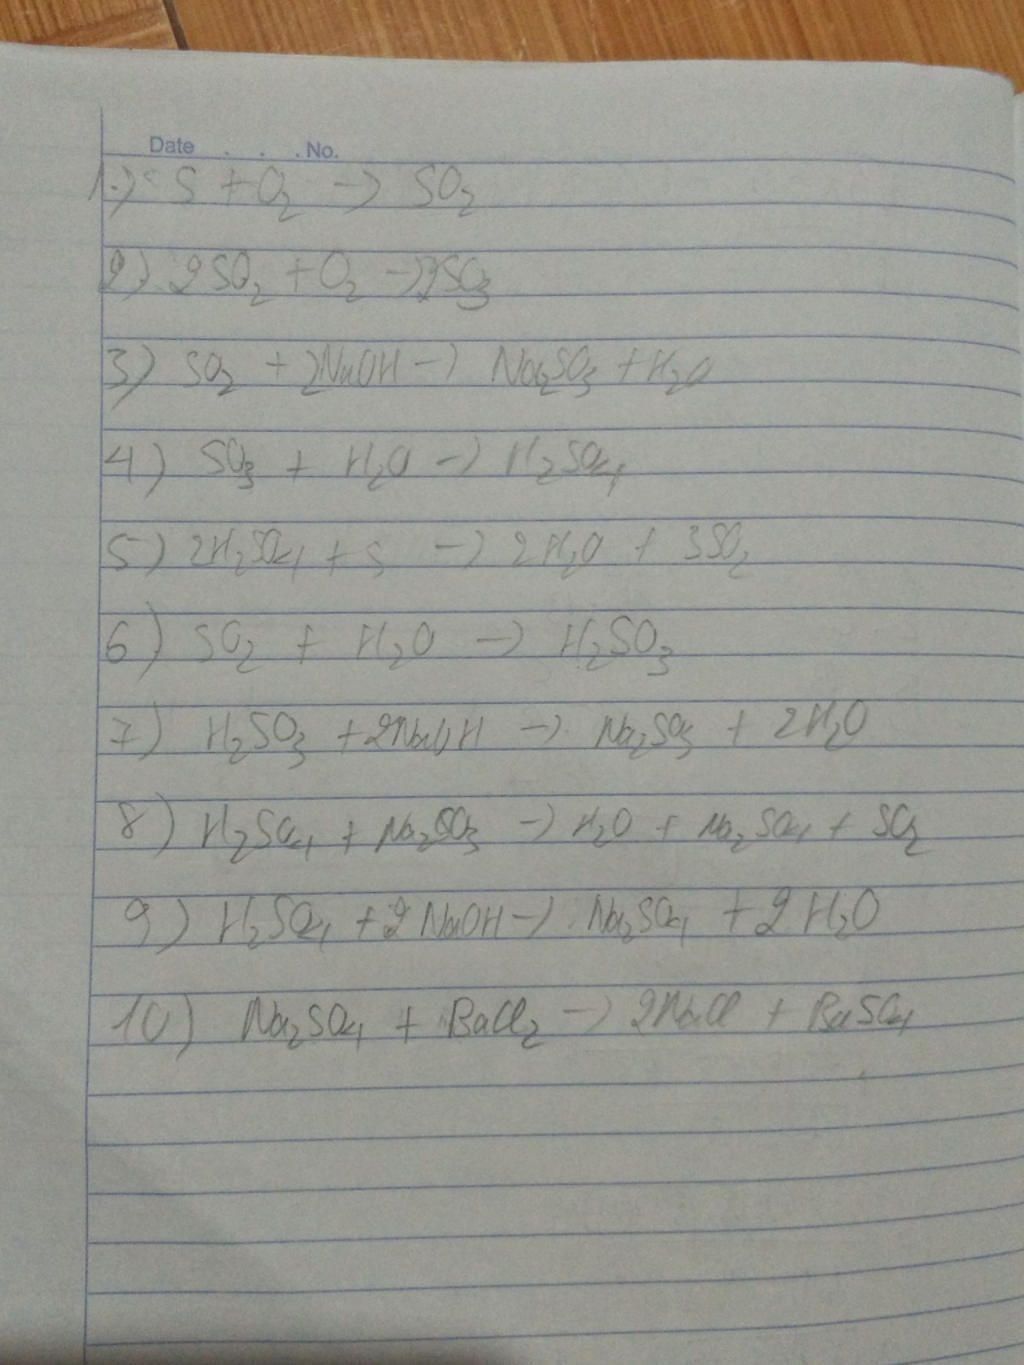 Date . . . No.
1.) S + O₂ → SO₂
2) 2SO₂ + O₂ → 2SO₃
3) SO₂ + 2NaOH → Na₂SO₃ + H₂O
4) SO₃ + H₂O → H₂SO₄
5) 2H₂SO₄ + S → 2H₂O + 3SO₂
6) SO₂ + H₂O → H₂SO₃
7) H₂SO₃ + 2NaOH → Na₂SO₃ + 2H₂O
8) H₂SO₄ + Na₂SO₃ → H₂O + Na₂SO₄ + SO₂
9) H₂SO₄ + 2NaOH → Na₂SO₄ + 2H₂O
10) Na₂SO₄ + BaCl₂ → 2NaCl + BaSO₄